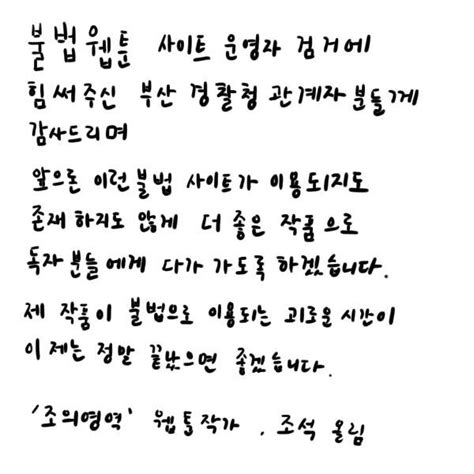 불법웹툰 사이트 운영자 검거에
힘써주신 부산 경찰청 관계자분들께
감사드리며
앞으론 이런 불법 사이트가 이용되지도
존재하지도 않게 더 좋은 작품으로
독자분들에게 다가가도록 하겠습니다.
제 작품이 불법으로 이용되는 괴로운 시간이
이제는 정말 끝났으면 좋겠습니다.
'조의영역' 웹툰작가. 조석 올림